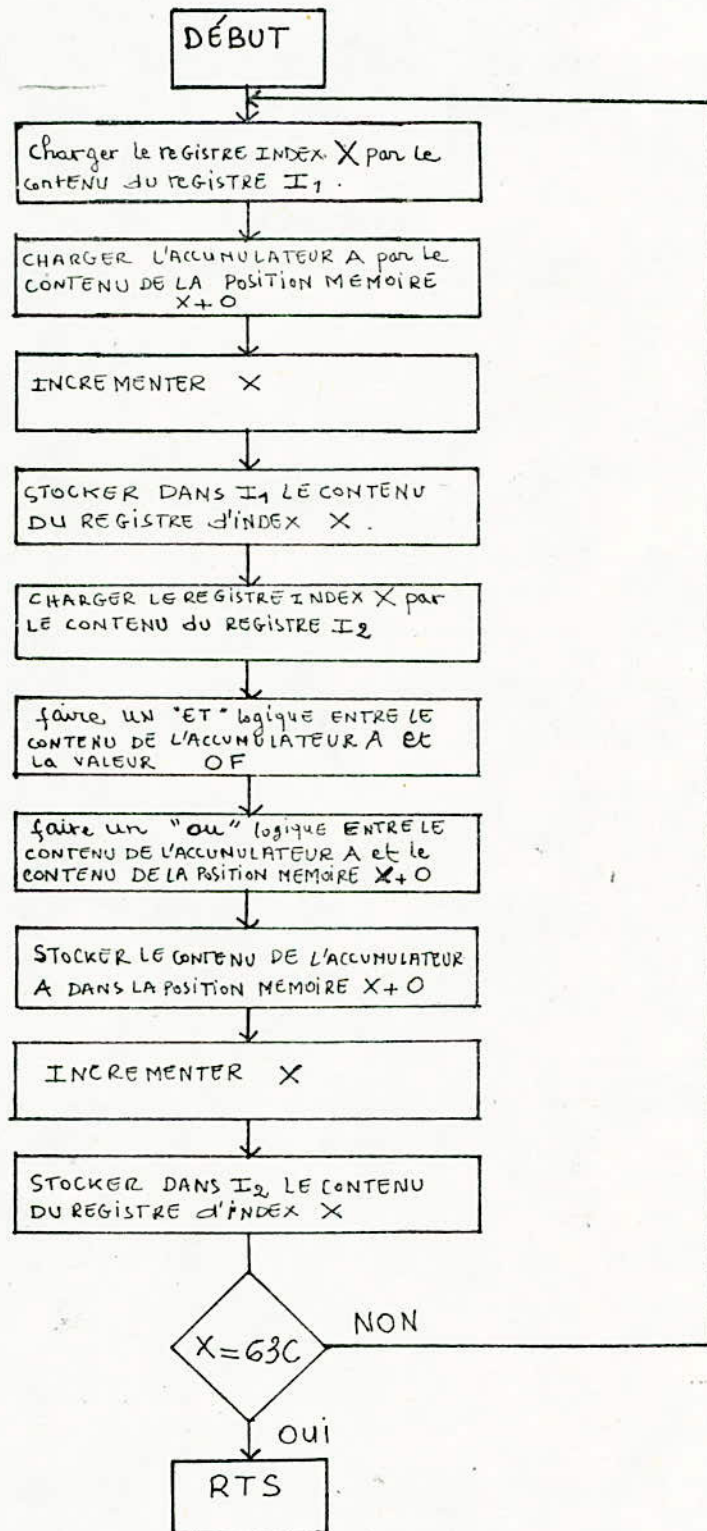 DÉBUT
Charger le reGISTRE INDEX X par le
contENU du reGISTRE I1.
CHARGER L'ACCUMULATEUR A par le
CONTENU DE LA POSITION MEMOIRE
X+O
INCREMENTER X
STOCKER DANS I1 LE CONTENU
DU REGISTRE d'iNDEX X.
CHARGER LE REGISTRE INDEX X par
LE CONTENU du REGISTRE I2
faire UN "ET" logique ENTRE LE
CONTENU DE L'ACCUMULATEUR A et
la VALEUR OF
faire un "ou" logique ENTRE LE
CONTENU DE L'ACCUMULATEUR A et le
CONTENU DE LA POSITION MEMOIRE X+O
STOCKER LE CONTENU DE L'ACCUMULATEUR
A DANS LA POSITION MEMOIRE X+O
INCREMENTER X
STOCKER DANS I2 LE CONTENU
DU REGISTRE d'INDEX X
X=63C
NON
OUI
RTS